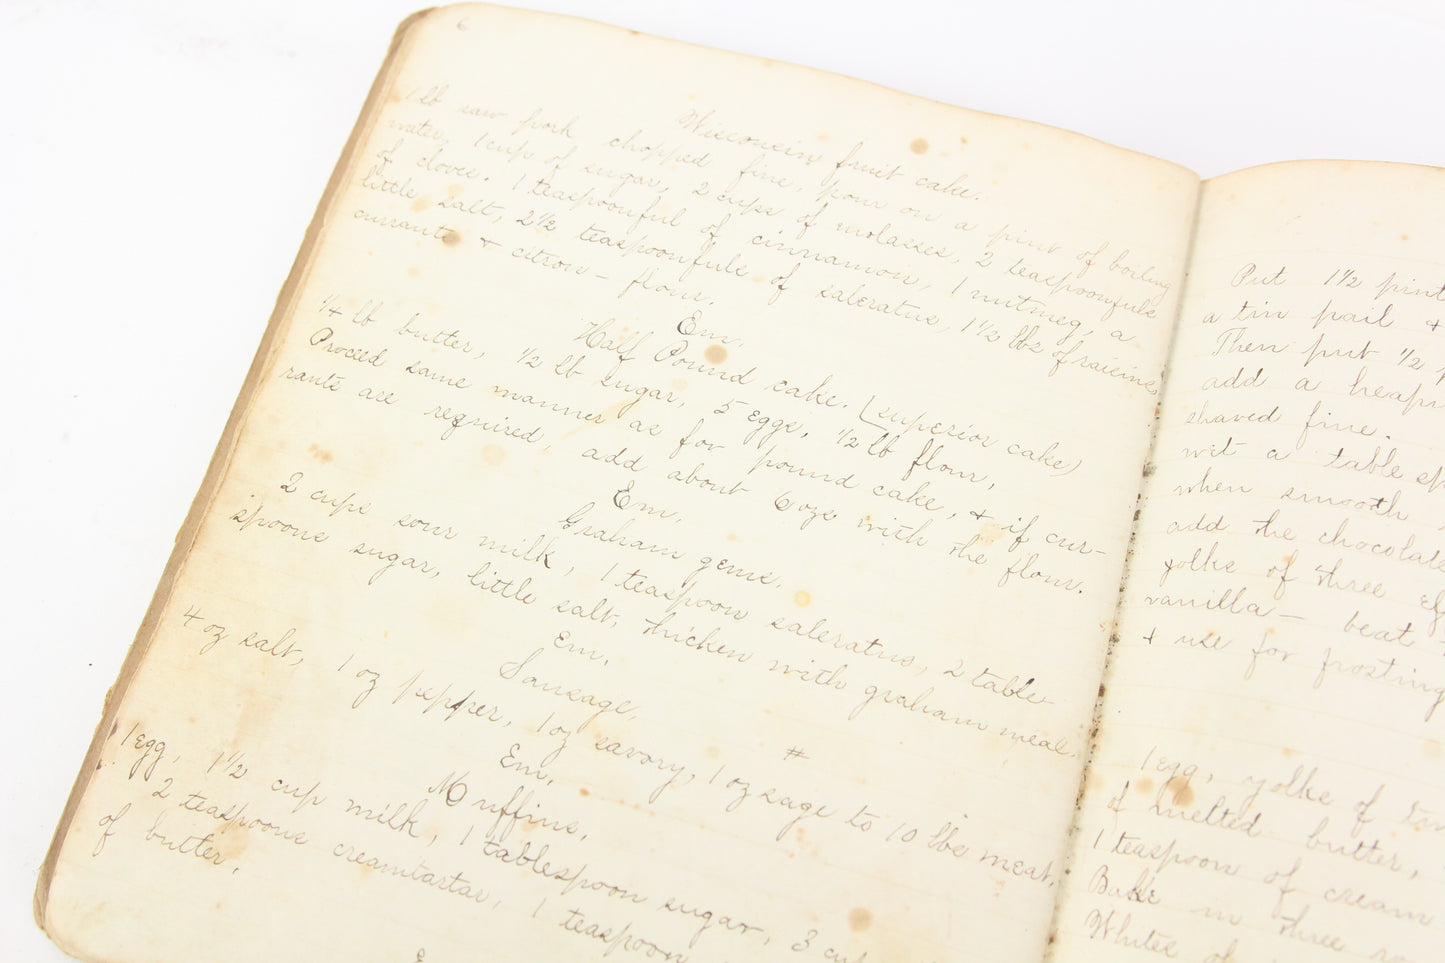 6
Wisconsin fruit cake.
1 lb raw pork chopped fine, pour on a pint of boiling
water, 1 cup of sugar, 2 cups of molasses, 2 teaspoonfuls
of cloves. 1 teaspoonful of cinnamon, 1 nutmeg, a
little salt, 2 1/2 teaspoonfuls of saleratus, 1 1/2 lbs of raisins,
currants & citron – flour.
Em.
Half Pound cake. (superior cake)
1/4 lb butter, 1/2 lb sugar, 5 eggs, 1/2 lb flour,
Proceed same manner as for pound cake, & if cur-
rants are required, add about 6 ozs with the flour.
Em.
Graham gems.
2 cups sour milk, 1 teaspoon saleratus, 2 table
spoons sugar, little salt, thicken with graham meal.
Em.
Sausage. #
4 oz salt, 1 oz pepper, 1 oz savory, 1 oz sage to 10 lbs meat.
Em.
Muffins.
1 egg, 1 1/2 cup milk, 1 tablespoon sugar, 3 cu
2 teaspoons creamtartar, 1 teaspoon
of butter.
E
Put 1 1/2 pint
a tin pail &
Then put 1/2
add a heapi
shaved fine.
wet a table sp
when smooth
add the chocolate
yolks of three eg
vanilla – beat
& use for frosting
1 egg, yolks of
of melted butter,
1 teaspoon of cream
Bake in three
Whites of